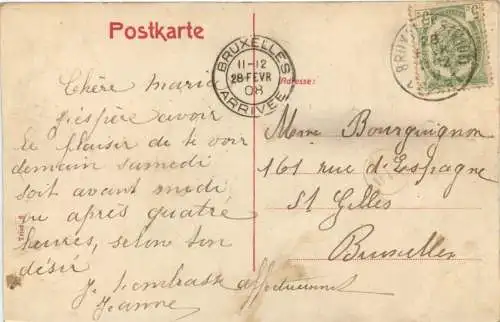 Postkarte
BRUXELLES
11-12
28 FEVR
08
ARRIVÉE
Adresse:
Chère Marie
j'espère avoir
le plaisir de te voir
demain samedi
soit avant midi
ou après quatre
heures, selon ton
désir
Je t'embrasse affectueusement
Jeanne
Mme Bourguignon
161 rue d'Espagne
St Gilles
Bruxelles